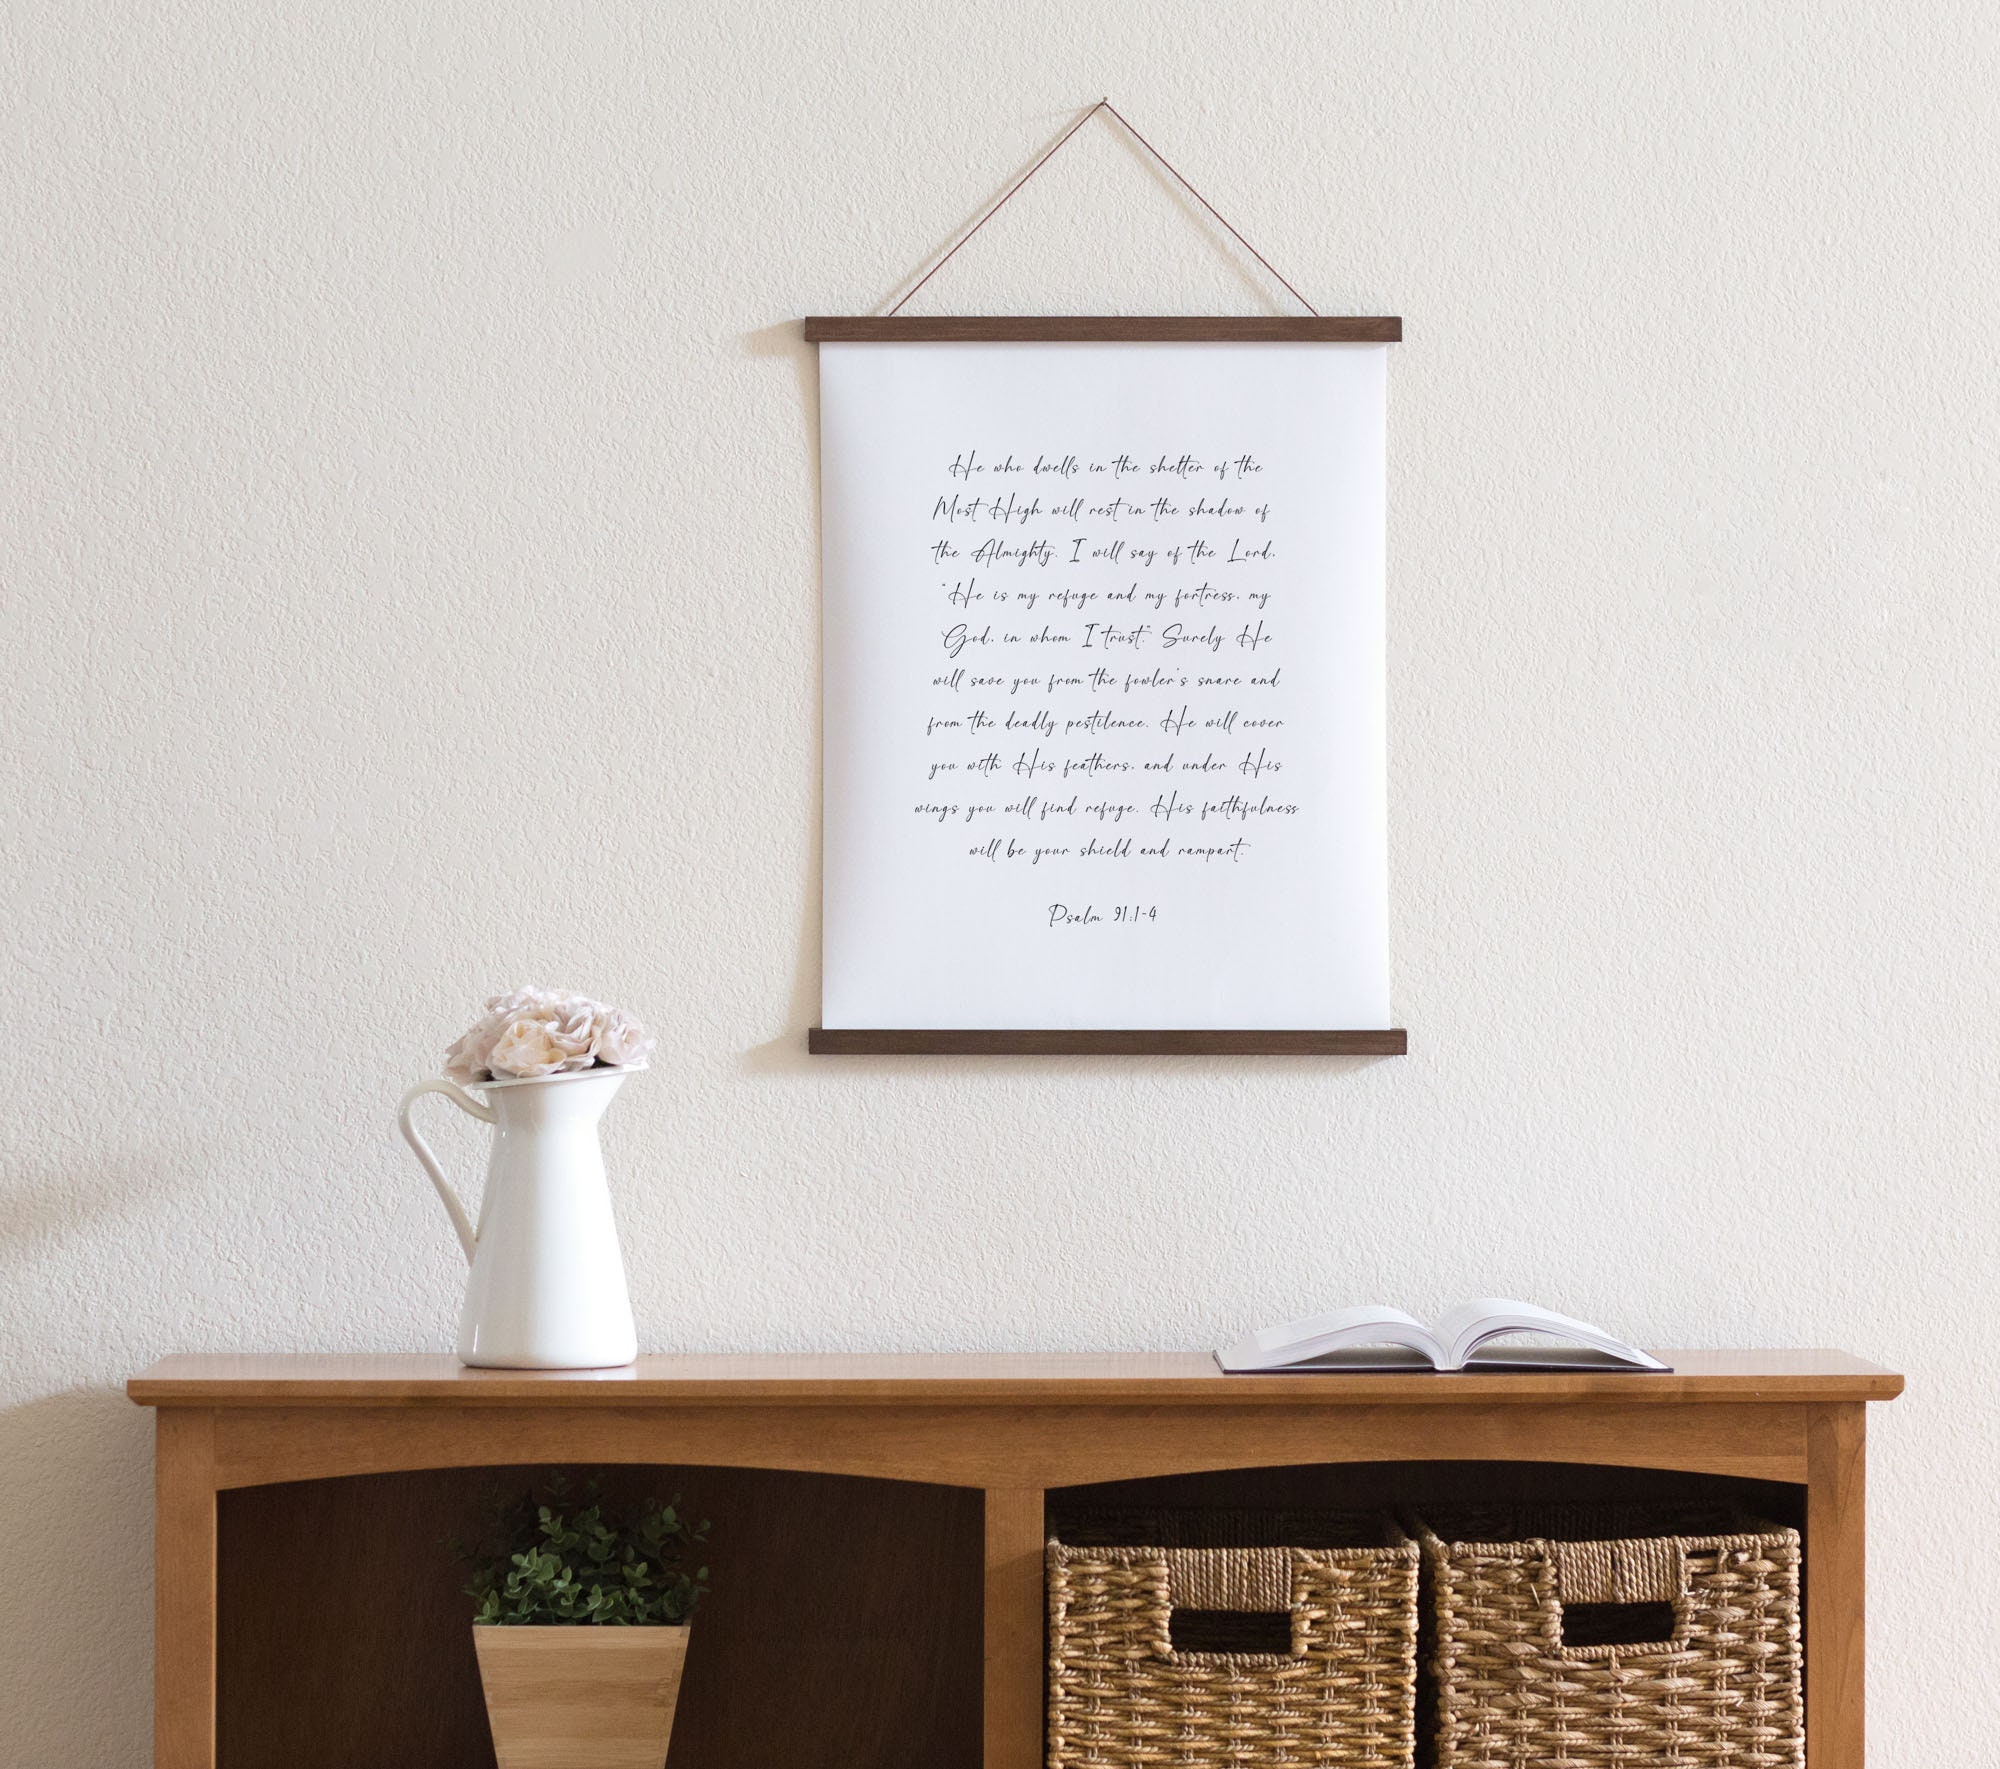 He who dwells in the shelter of the
Most High will rest in the shadow of
the Almighty. I will say of the Lord,
"He is my refuge and my fortress, my
God, in whom I trust." Surely He
will save you from the fowler's snare and
from the deadly pestilence. He will cover
you with His feathers, and under His
wings you will find refuge. His faithfulness
will be your shield and rampart.
Psalm 91:1-4